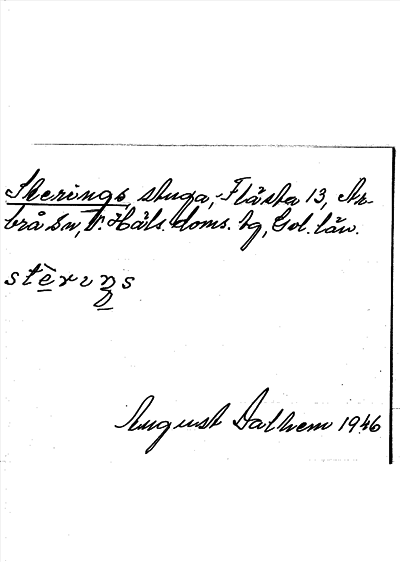 Sterings, stuga, Flästa 13, Ar-
brå sn, V. Häls. doms. tg, Gvl. län.
stèrıŋs
August Dalhem 1946